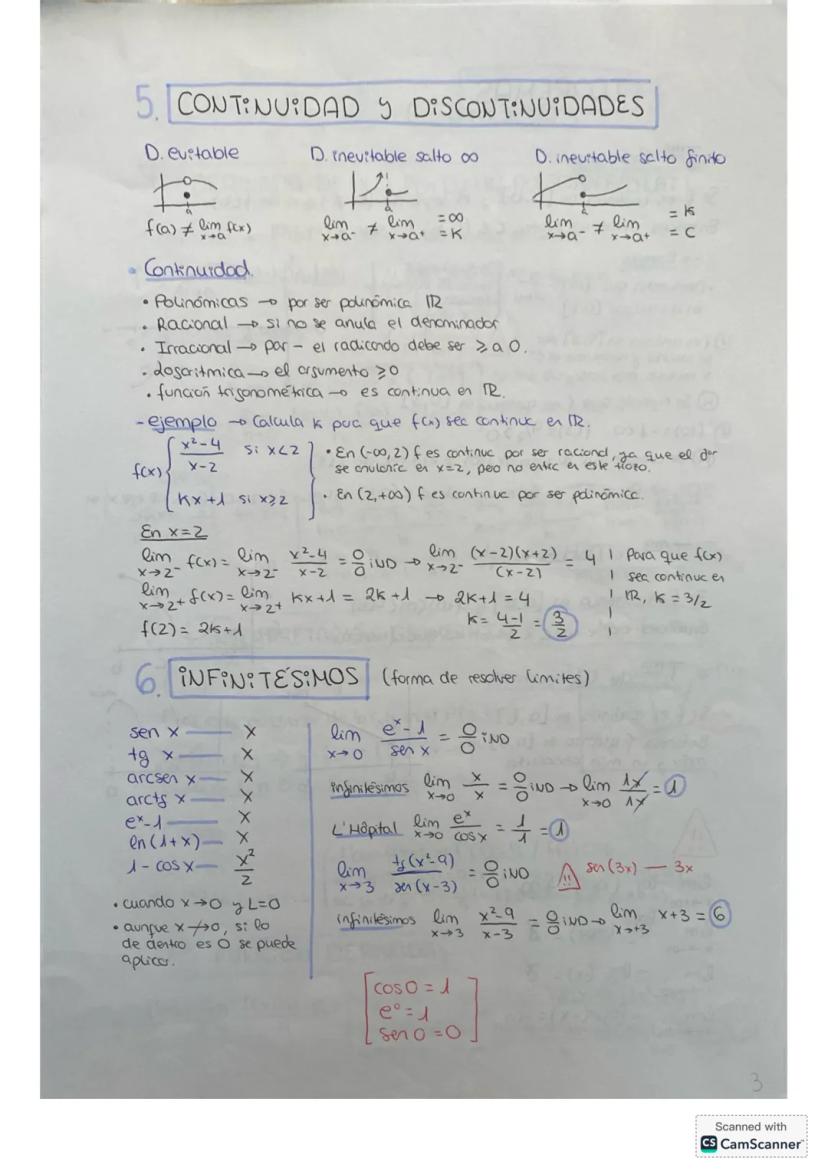 5. CONTINUIDAD y DISCONTINUIDADES
D. evitable
D. inevitable salto ∞
D. inevitable salto finito
a
a
a
f(a) ≠ lim x→a f(x)
lim x→a⁻ ≠ lim x→a⁺ = ∞ = K
lim x→a⁻ ≠ lim x→a⁺ = K = C
• Continuidad.
• Polinómicas → por ser polinómica ℝ
• Racional → si no se anula el denominador
• Irracional → par – el radicando debe ser ≥ a 0.
• Logarítmica → el argumento ≥0
• función trigonométrica → es continua en ℝ.
- ejemplo → Calcula k para que f(x) sea continua en ℝ.
f(x) { x²-4 / x-2 si x<2
Kx+1 si x≥2
• En (-∞,2) f es continua por ser racional, ya que el dor
se anularía en x=2, pero no entra en este trozo.
• En (2,+∞) f es continua por ser polinómica.
En x=2
lim x→2⁻ f(x) = lim x→2⁻ x²-4 / x-2 = 0/0 iND → lim x→2⁻ (x-2)(x+2) / (x-2) = 4
lim x→2⁺ f(x) = lim x→2⁺ Kx+1 = 2K+1 → 2K+1=4
f(2) = 2K+1
K = 4-1 / 2 = 3/2
Para que f(x)
sea continua en
ℝ, K = 3/2
6. iNFiNiTÉSiMOS (forma de resolver límites)
sen x — x
tg x — x
arcsen x — x
arctg x — x
eˣ-1 — x
ln(1+x) — x
1-cosx — x²/2
• cuando x→0 y L=0
• aunque x↛0, si lo
de dentro es 0 se puede
aplicar.
lim x→0 eˣ-1 / sen x = 0/0 iND
infinitésimos lim x→0 x/x = 0/0 iND → lim x→0 1x/1x = 1
L'Hôpital lim x→0 eˣ / cosx = 1/1 = 1
lim x→3 tg(x²-9) / sen(x-3) = 0/0 iND
!! sen(3x) — 3x
infinitésimos lim x→3 x²-9 / x-3 = 0/0 iND → lim x→+3 x+3 = 6
cos0 = 1
e⁰ = 1
sen0 = 0
3
Scanned with
CS CamScanner